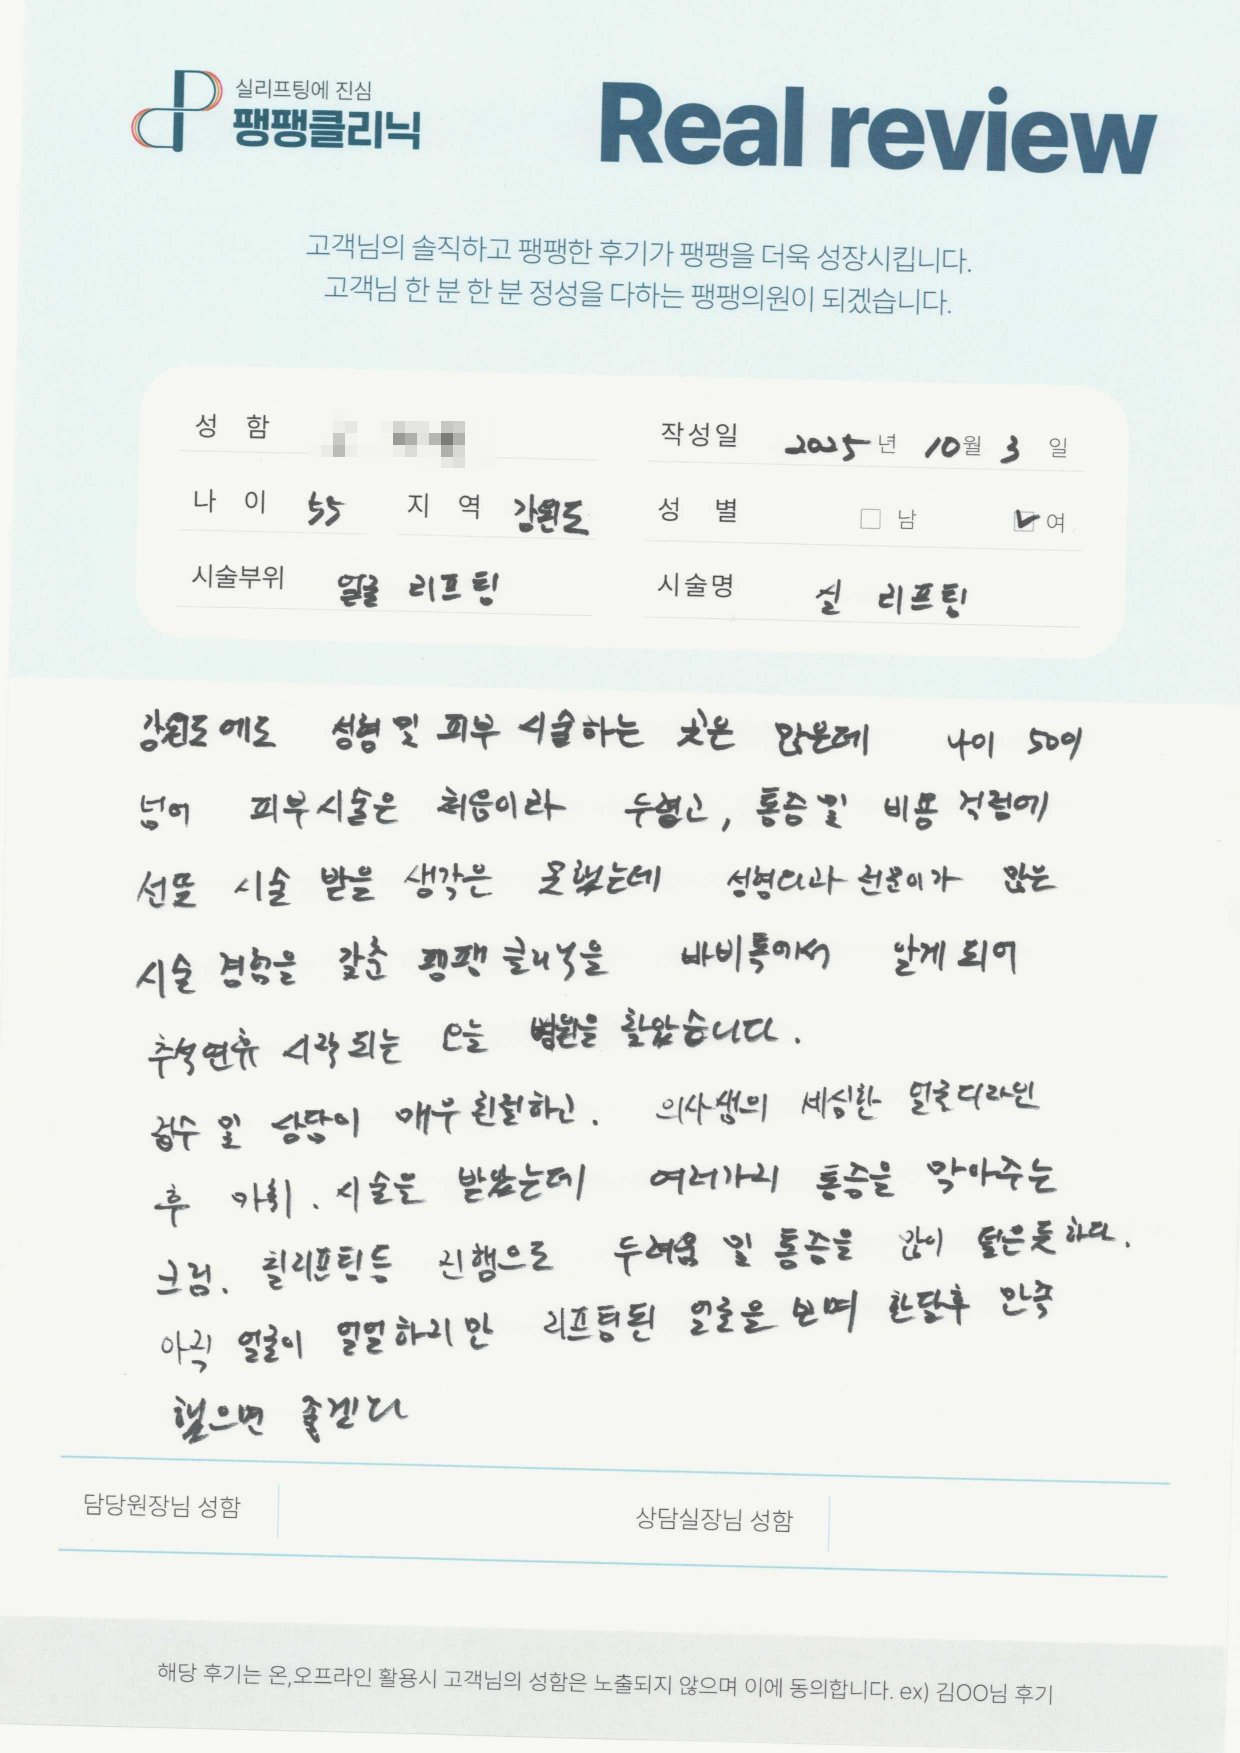 실리프팅에 진심
팽팽클리닉
Real review
고객님의 솔직하고 팽팽한 후기가 팽팽을 더욱 성장시킵니다.
고객님 한 분 한 분 정성을 다하는 팽팽의원이 되겠습니다.
성 함 작성일 2025년 10월 3일
나 이 55 지 역 강원도 성 별 남 여
시술부위 얼굴 리프팅 시술명 실 리프팅
강원도에도 성형 및 피부 시술하는 곳은 많은데 나이 50이
넘어 피부시술은 처음이라 두렵고, 통증 및 비용 걱정에
선뜻 시술 받을 생각은 못했는데 성형외과 전문의가 많은
시술 경험을 갖춘 팽팽클리닉을 바비톡에서 알게되어
추석연휴 시작되는 오늘 병원을 찾았습니다.
접수 및 상담이 매우 친절하고. 의사쌤의 세심한 얼굴디자인
후 마취. 시술을 받았는데 여러가지 통증을 막아주는
크림. 실리프팅등 진행으로 두려움 및 통증을 많이 덜은듯하다.
아직 얼굴이 얼얼하지만 리프팅된 얼굴을 보며 한달후 만족
했으면 좋겠다
담당원장님 성함 상담실장님 성함
해당 후기는 온,오프라인 활용시 고객님의 성함은 노출되지 않으며 이에 동의합니다. ex) 김OO님 후기